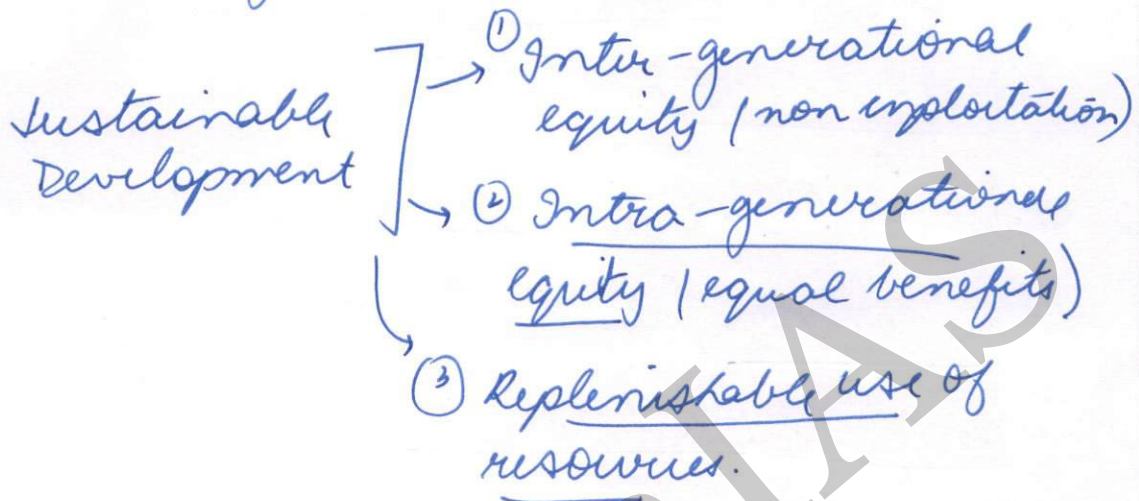 Sustainable
Development
① Inter-generational
equity (non exploitation)
② Intra-generational
equity (equal benefits)
③ Replenishable use of
resources.
IAS